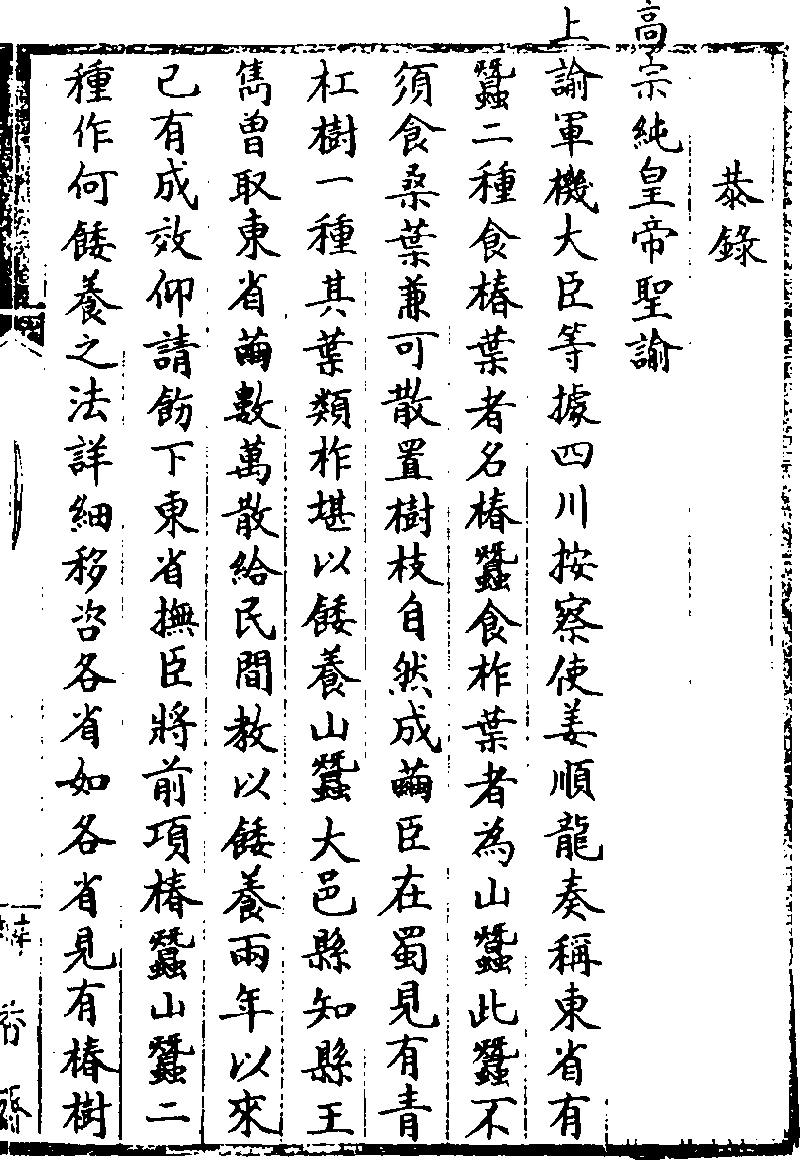 恭錄
高宗純皇帝聖諭
上諭軍機大臣等據四川按察使姜順龍奏稱東省有
蠶二種食椿葉者名椿蠶食柞葉者為山蠶此蠶不
須食桑葉兼可散置樹枝自然成繭臣在蜀見有青
杠樹一種其葉類柞堪以餧養山蠶大邑縣知縣王
雋曾取東省繭數萬散給民間教以餧養兩年以來
已有成效仰請飭下東省撫臣將前項椿蠶山蠶二
種作何餧養之法詳細移咨各省如各省見有椿樹